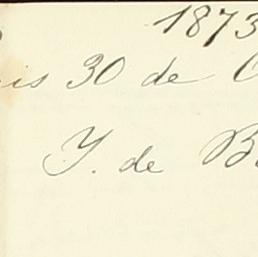 1873
is 30 de
Y. de B